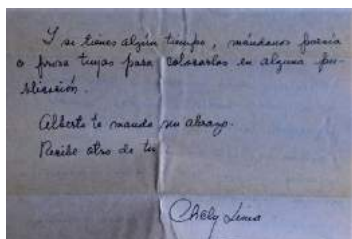 Y si tienes algún tiempo, mándanos poesía
o prosa tuyas para colocarlas en alguna pu-
blicación.
Alberto te manda un abrazo.
Recibe otro de tu
Chely Lima